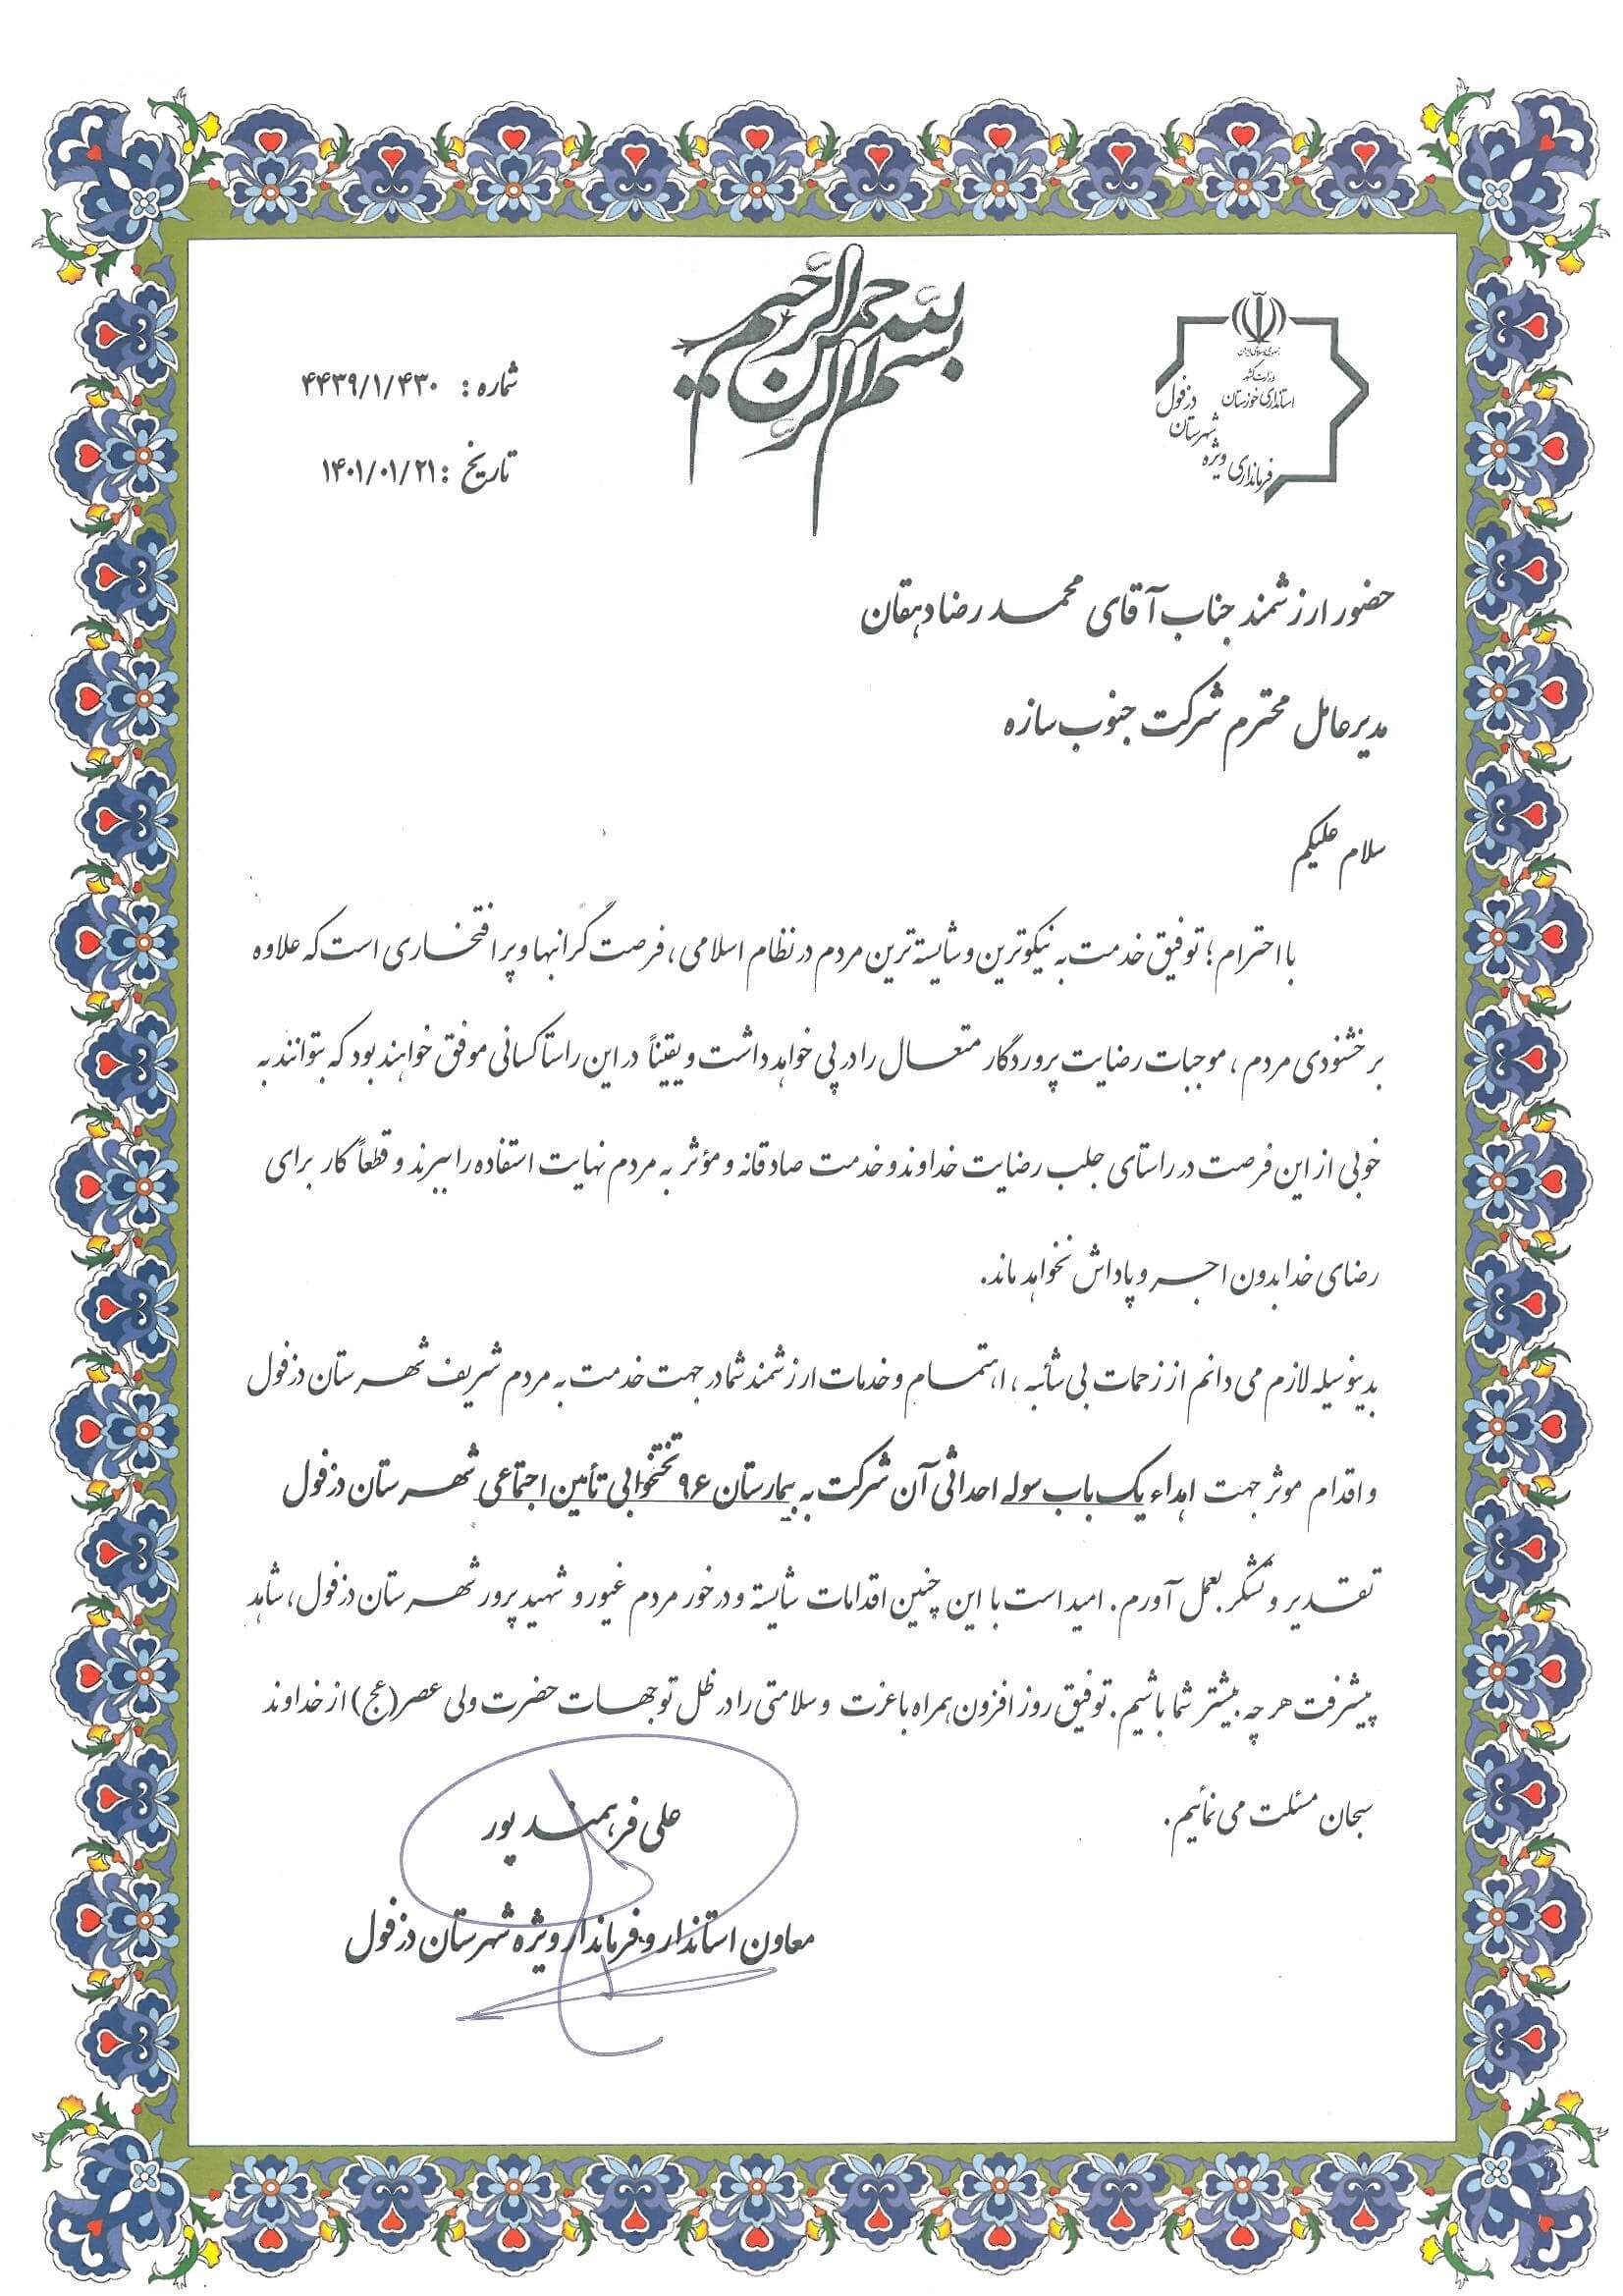 بسم الله الرحمن الرحیم
جمهوری اسلامی ایران
وزارت کشور
استانداری خوزستان
فرمانداری ویژه شهرستان دزفول
شماره : ۴۴۳۹/۱/۴۳۰
تاریخ : ۱۴۰۱/۰۱/۲۱
حضور ارزشمند جناب آقای محمد رضا دهقان
مدیرعامل محترم شرکت جنوب سازه
سلام علیکم
با احترام ؛ توفیق خدمت به نیکوترین و شایسته ترین مردم در نظام اسلامی ، فرصت گرانبها و پر افتخاری است که علاوه
بر خشنودی مردم ، موجبات رضایت پروردگار متعال را در پی خواهد داشت و یقیناً در این راستا کسانی موفق خواهند بود که بتوانند به
خوبی از این فرصت در راستای جلب رضایت خداوند و خدمت صادقانه و مؤثر به مردم نهایت استفاده را ببرند و قطعاً کار برای
رضای خدا بدون اجر و پاداش نخواهد ماند.
بدینوسیله لازم می دانم از زحمات بی شائبه ، اهتمام و خدمات ارزشمند شما در جهت خدمت به مردم شریف شهرستان دزفول
و اقدام موثر جهت اهداء یک باب سوله احداثی آن شرکت به بیمارستان ۹۶ تختخوابی تأمین اجتماعی شهرستان دزفول
تقدیر و تشکر بعمل آورم. امید است با این چنین اقدامات شایسته و درخور مردم غیور و شهید پرور شهرستان دزفول، شاهد
پیشرفت هر چه بیشتر شما باشیم. توفیق روز افزون همراه با عزت و سلامتی را در ظل توجهات حضرت ولی عصر(عج) از خداوند
سبحان مسئلت می نمائیم.
علی فرهمند پور
معاون استاندار و فرماندار ویژه شهرستان دزفول